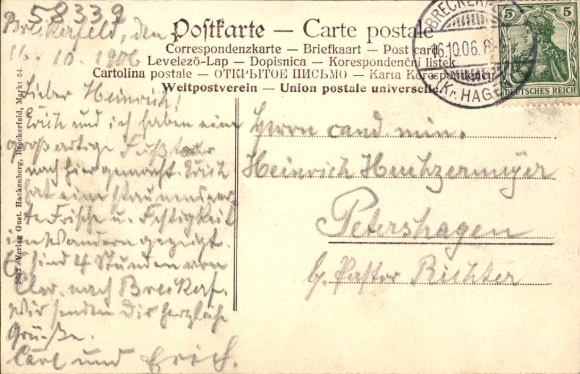 58339
Postkarte — Carte postale
Correspondenzkarte – Briefkaart – Post card
Levelező-Lap – Dopisnica – Korespondenční listek
Cartolina postale – ОТКРЫТОЕ ПИСЬМО – Karta Korespondencyjna
Weltpostverein – Union postale universelle
BRECKERFELD
16.10.06. 8-
Kr. HAGEN
5 5
DEUTSCHES REICH
Breckerfeld, den
16. 10. 1906
Lieber Heinrich!
Erich und ich haben eine
großartige Fußtour
nach hier gemacht. Erich
hat eine staunenswer-
te Frische u. Fertigkeit
im Wandern gezeigt.
Es sind 4 Stunden von
nach Breckerf.
Wir senden Dir herzliche
Grüße.
Carl und Erich.
Herrn cand. min.
Heinrich
Petershagen
b/ Pastor Richter
Verlag Gust. Hackenberg, Breckerfeld, Markt 51